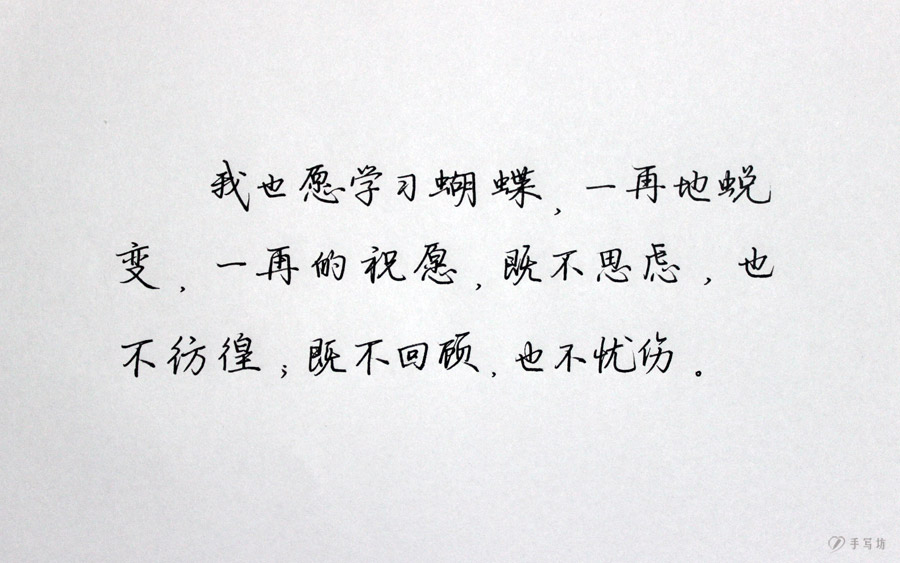 我也愿学习蝴蝶，一再地蜕
变，一再的祝愿，既不思虑，也
不彷徨；既不回顾，也不忧伤。
手写坊